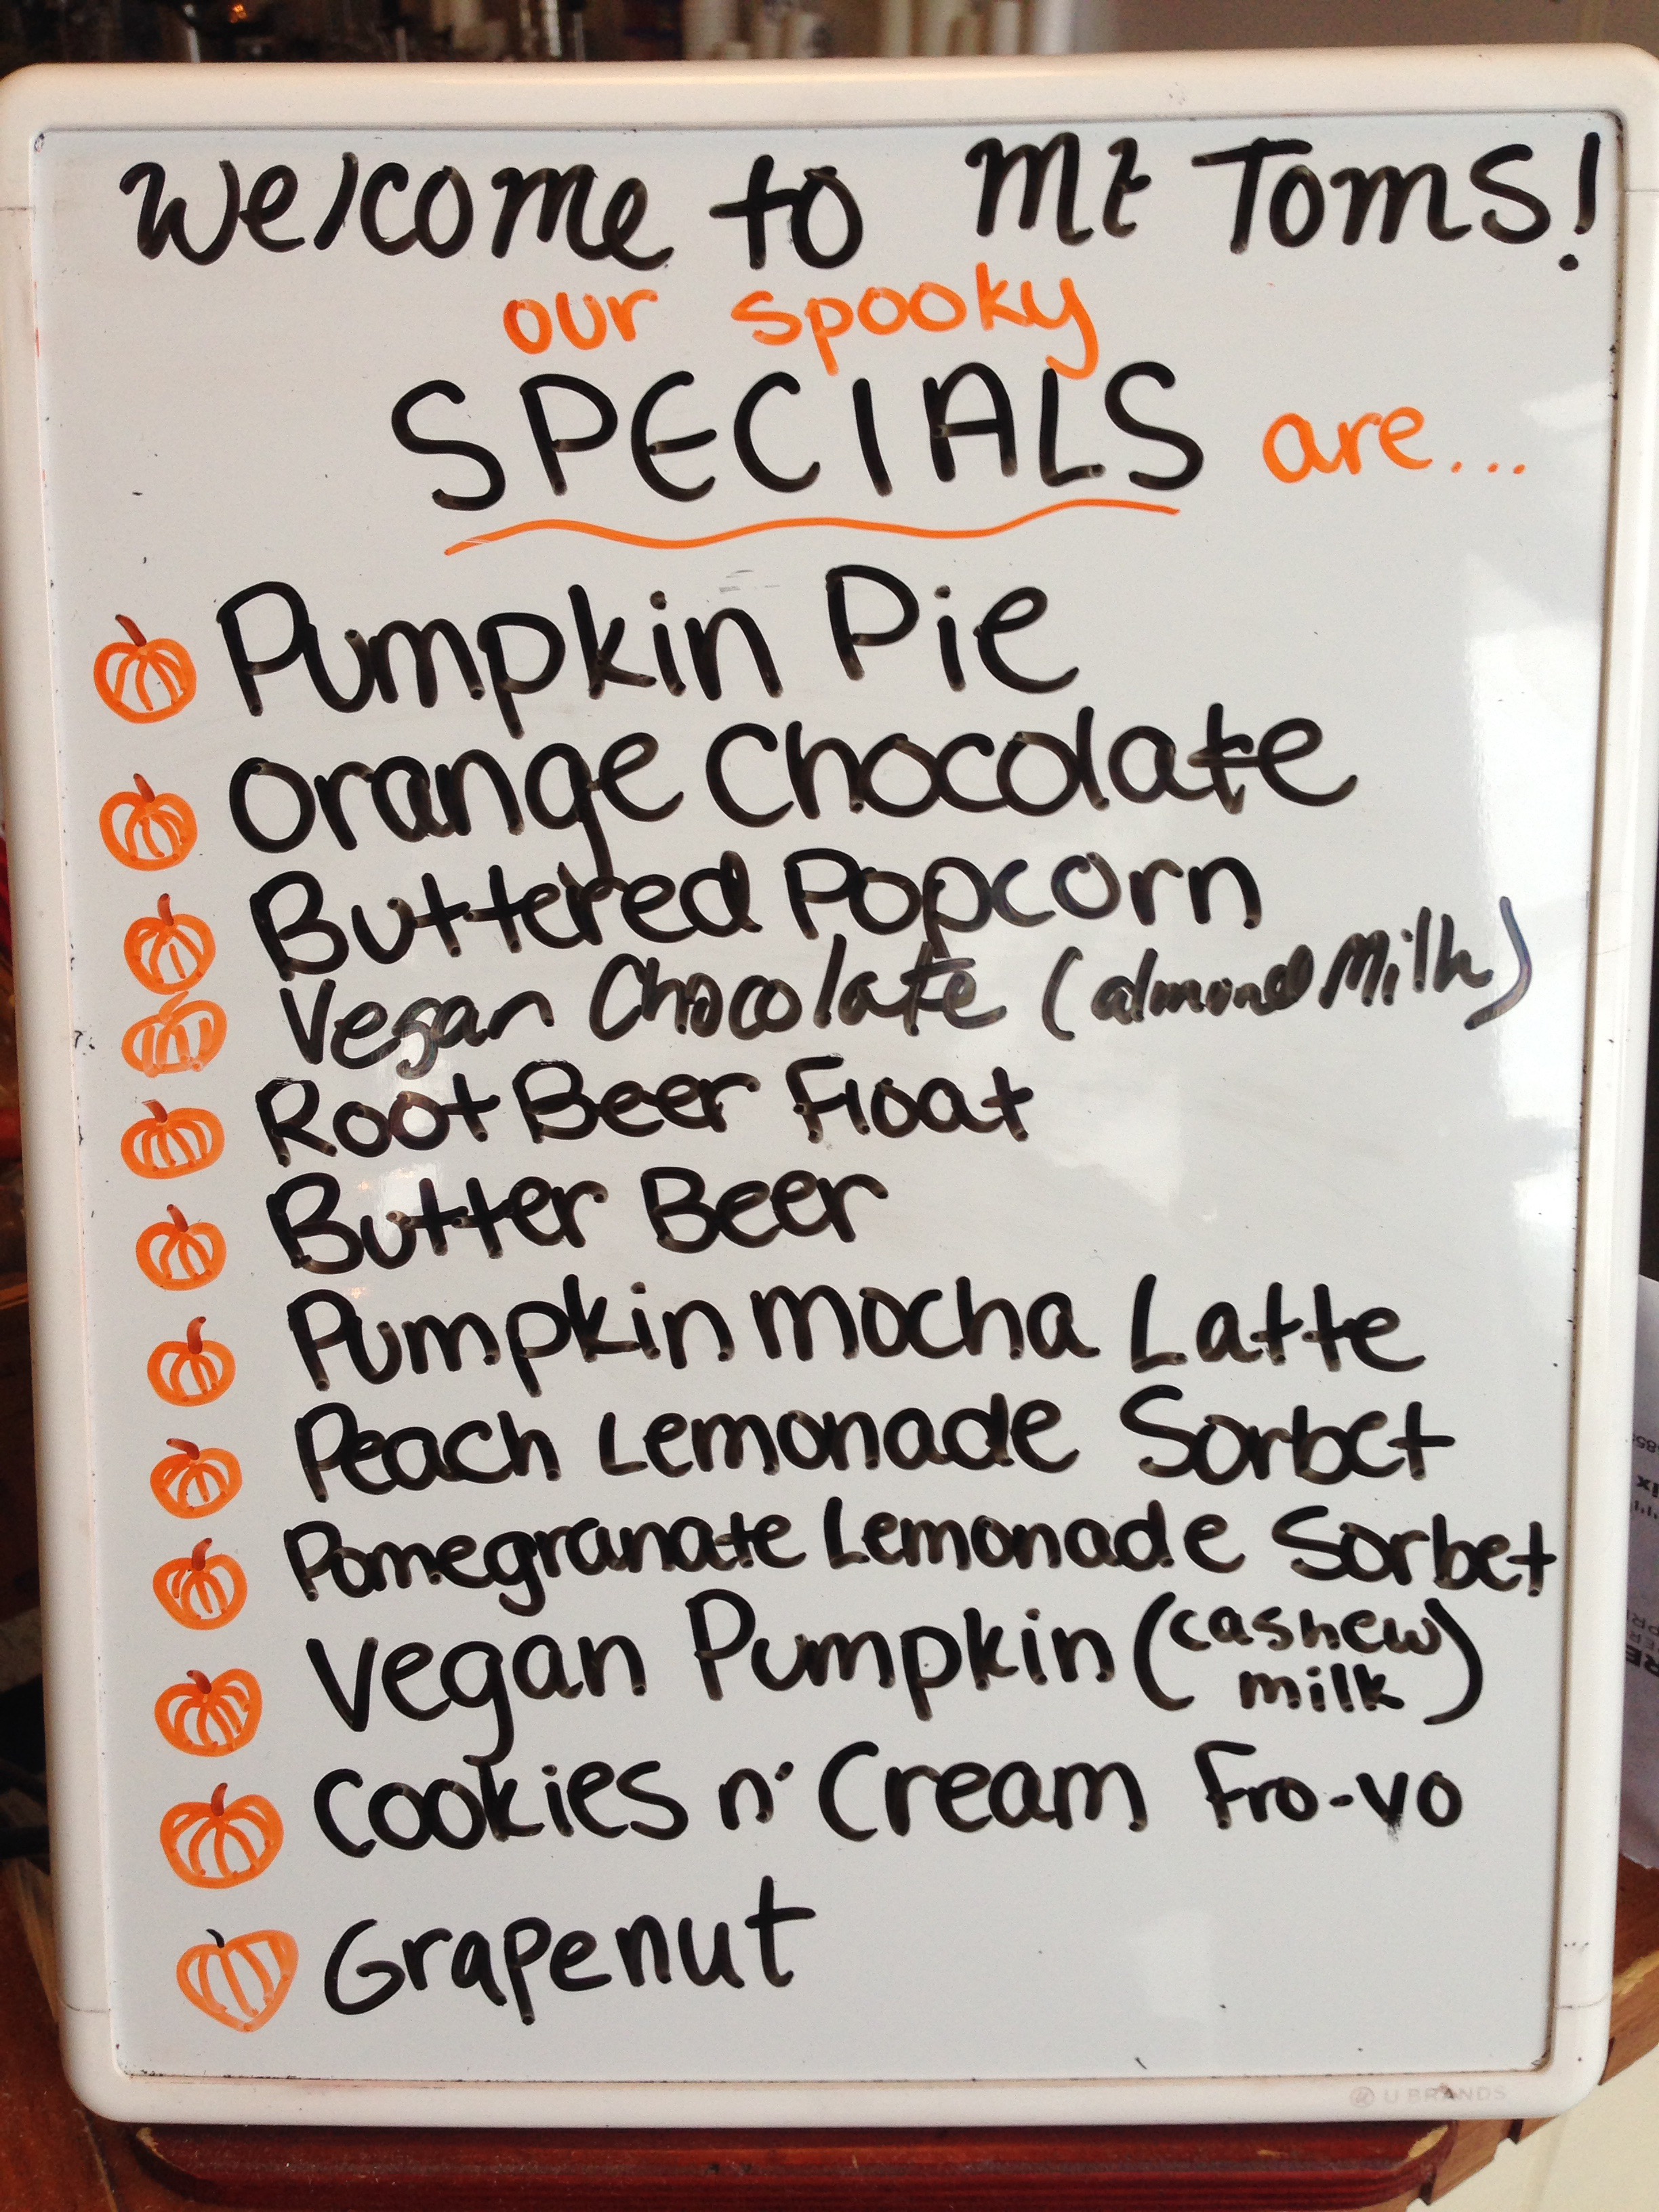 Welcome to Mt Toms!
our spooky
SPECIALS are...
Pumpkin Pie
Orange Chocolate
Buttered Popcorn
Vegan Chocolate (almond Milk)
Root Beer Float
Butter Beer
Pumpkin mocha Latte
Peach Lemonade Sorbet
Pomegranate Lemonade Sorbet
Vegan Pumpkin (cashew
milk)
Cookies n' Cream Fro-yo
Grapenut
U BRANDS